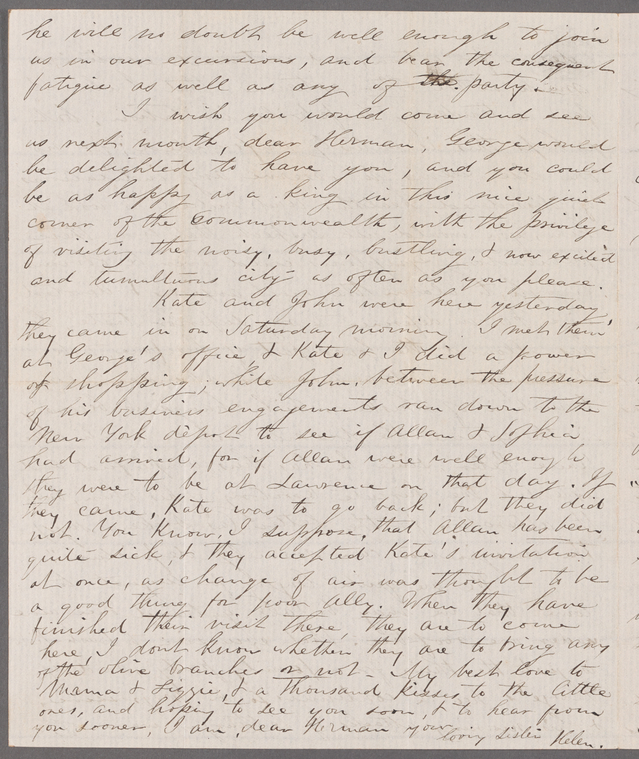 he will no doubt be well enough to join
us in our excursions, and bear the consequent
fatigue as well as any of the party.
I wish you would come and see
us next month, dear Herman, George would
be delighted to have you, and you could
be as happy as a king in this nice quiet
corner of the commonwealth, with the privilege
of visiting the noisy, busy, bustling, & now excited
and tumultuous city as often as you please.
Kate and John were here yesterday
they came in on Saturday morning I met them
at George's office & Kate & I did a power
of shopping; while John, between the pressure
of his business engagements ran down to the
New York depot to see if Allan & Sophia
had arrived, for if Allan were well enough
they were to be at Lawrence on that day. If
they came, Kate was to go back; but they did
not. You know, I suppose, that Allan has been
quite sick, & they accepted Kate's invitation
at once, as change of air was thought to be
a good thing for poor Ally. When they have
finished their visit there, they are to come
here, I dont know whether they are to bring any
of the olive branches or not. My best love to
Mama & Lizzie, & a thousand kisses to the little
ones, and hoping to see you soon, & to hear from
you sooner, I am, dear Herman your loving sister Helen.